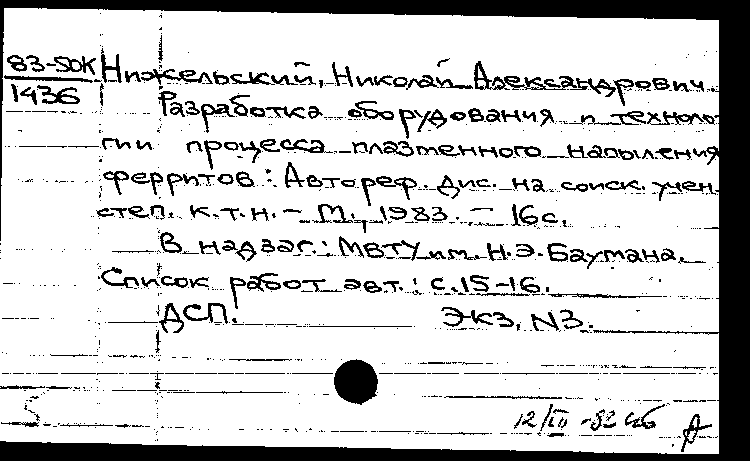 83-5ДК Нижельский, Николай Александрович.
1436
Разработка оборудования и техноло-
гии процесса плазменного напыления
ферритов: Автореф. дис. на соиск. учен.
степ. к.т.н. - М., 1983. - 16с.
В надзаг.: МВТУ им. Н.Э. Баумана.
Список работ авт.: с.15-16.
ДСП. Экз. N3.
5